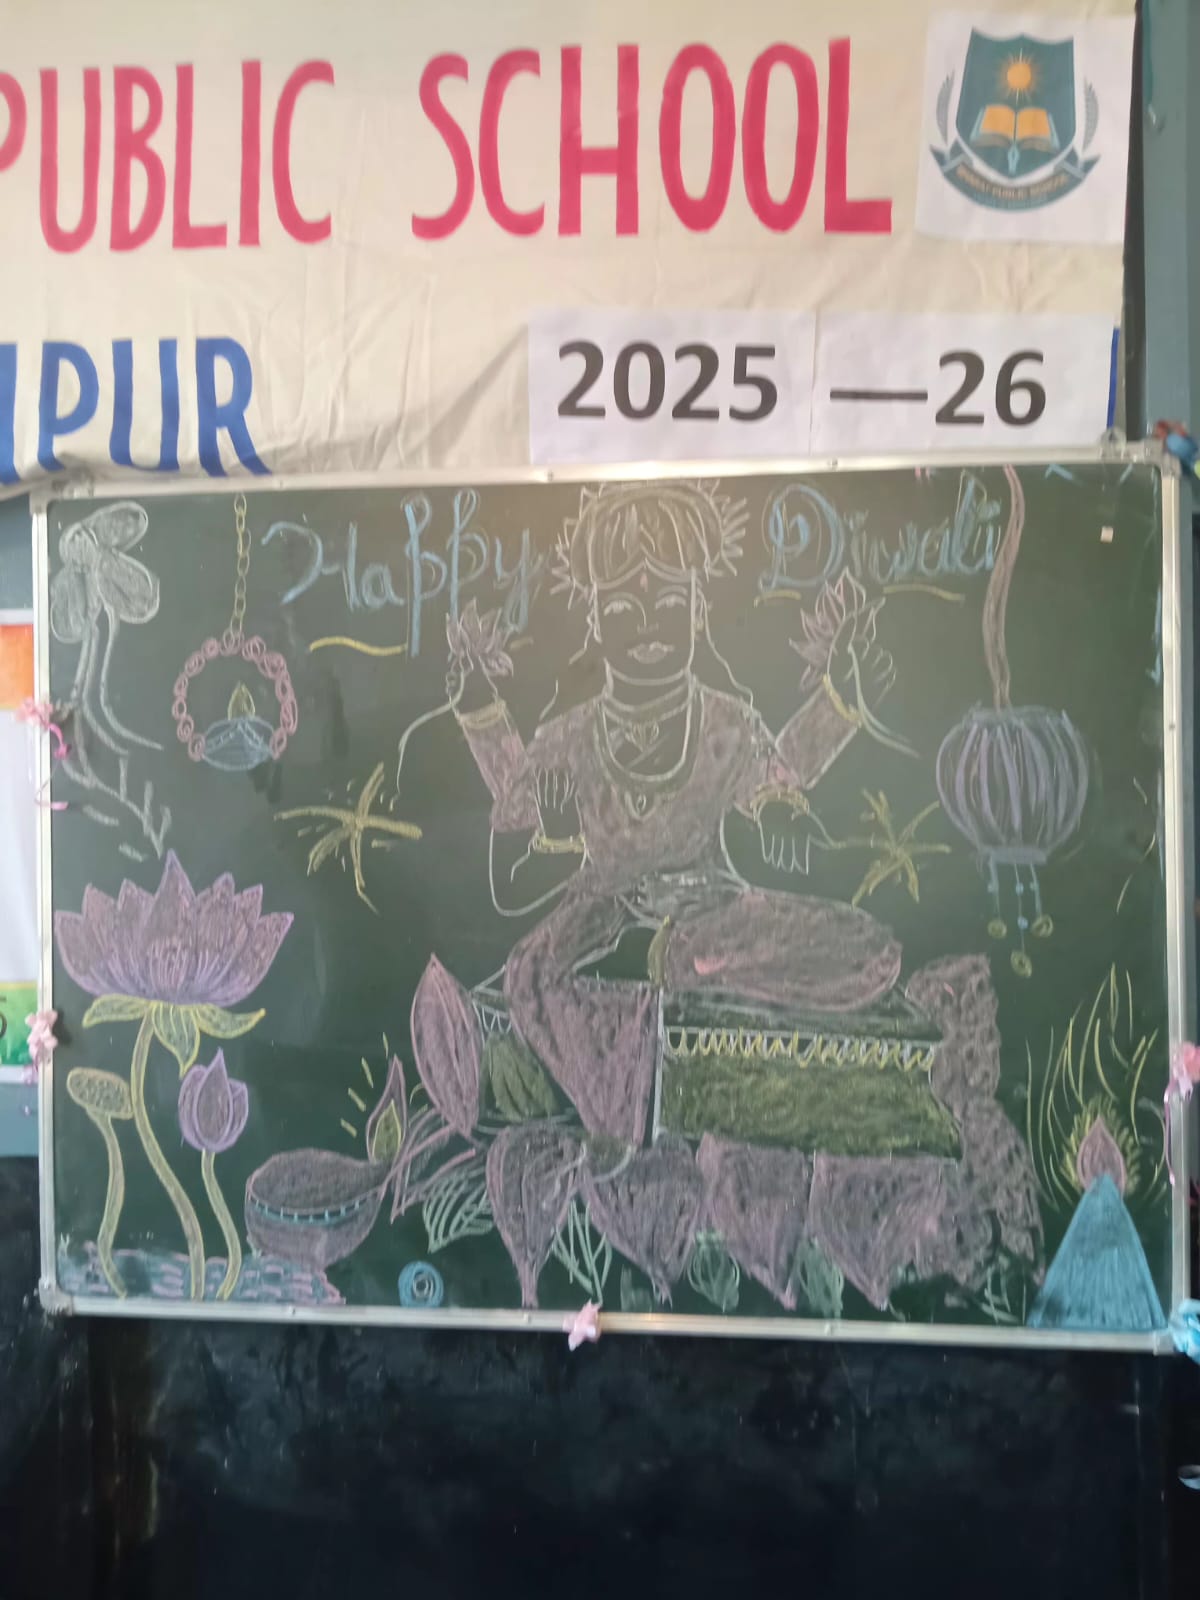 PUBLIC SCHOOL
MPUR
2025 —26
Happy Diwali